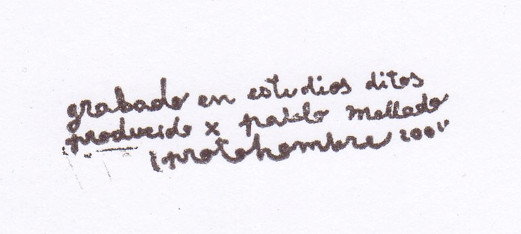 grabado en estudios ditos
producido x pablo mollado
protohombre 2001